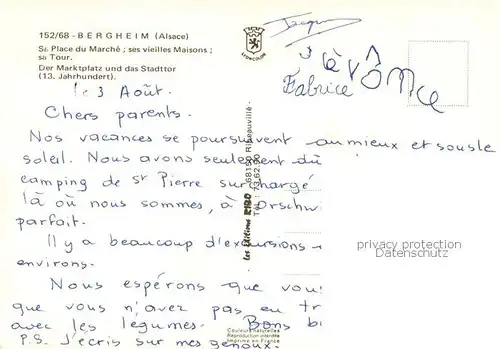 152/68 - BERGHEIM (Alsace)
Sa Place du Marché ; ses vieilles Maisons ;
sa Tour.
Der Marktplatz und das Stadttor
(13. Jahrhundert).
LYON-COLOR
Jacques
Fabrice
le 3 Août.
Chers parents.
Nos vacances se poursuivent au mieux et sous le
soleil. Nous avons seulement dû
camping de St Pierre surchargé
là où nous sommes, à Orschw
parfait.
Il y a beaucoup d'excursions
environs.
Nous espérons que vou
que vous n'avez pas eu tr
avec les légumes. Bons b
P.S. J'écris sur mes genoux.
Les Editions RIBO 68150 Ribeauvillé -
Tél. : 73.62.90
privacy protection
Datenschutz
Couleurs naturelles
Reproduction interdite
Imprimé en France